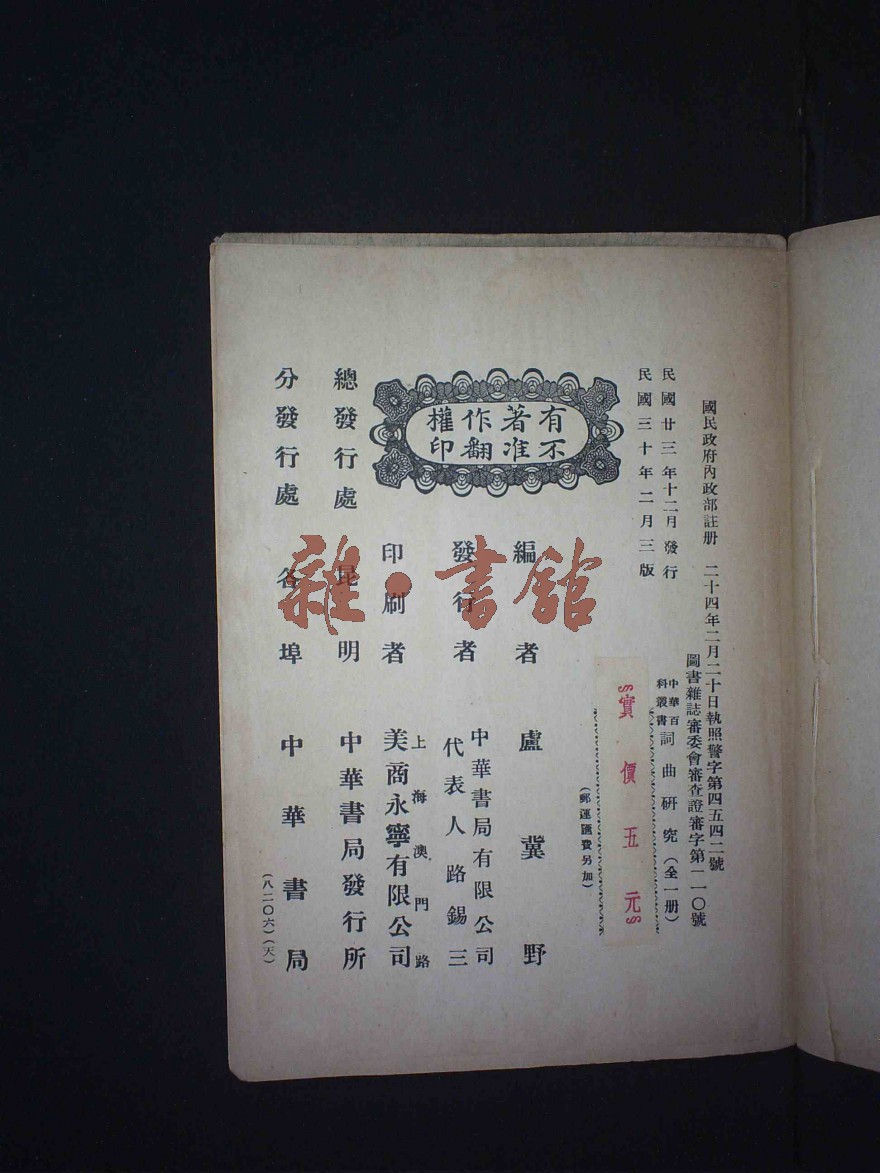 國民政府內政部註册 二十四年二月二十日執照警字第四五四二號
圖書雜誌審委會審查證審字第一一〇號
民國廿三年十二月發行
民國三十年二月三版
中華百
科叢書
詞曲研究(全一册)
實價五元
(郵運匯費另加)
有著作權
不准翻印
編者 盧冀野
發行者 中華書局有限公司
代表人路錫三
印刷者 上海澳門路
美商永寧有限公司
總發行處 昆明 中華書局發行所
分發行處 各埠 中華書局
(八二〇六)(天)
雜·書館